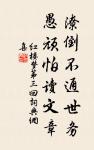 潦倒不通世务
愚顽怕读文章
红楼梦第三回词典网
集